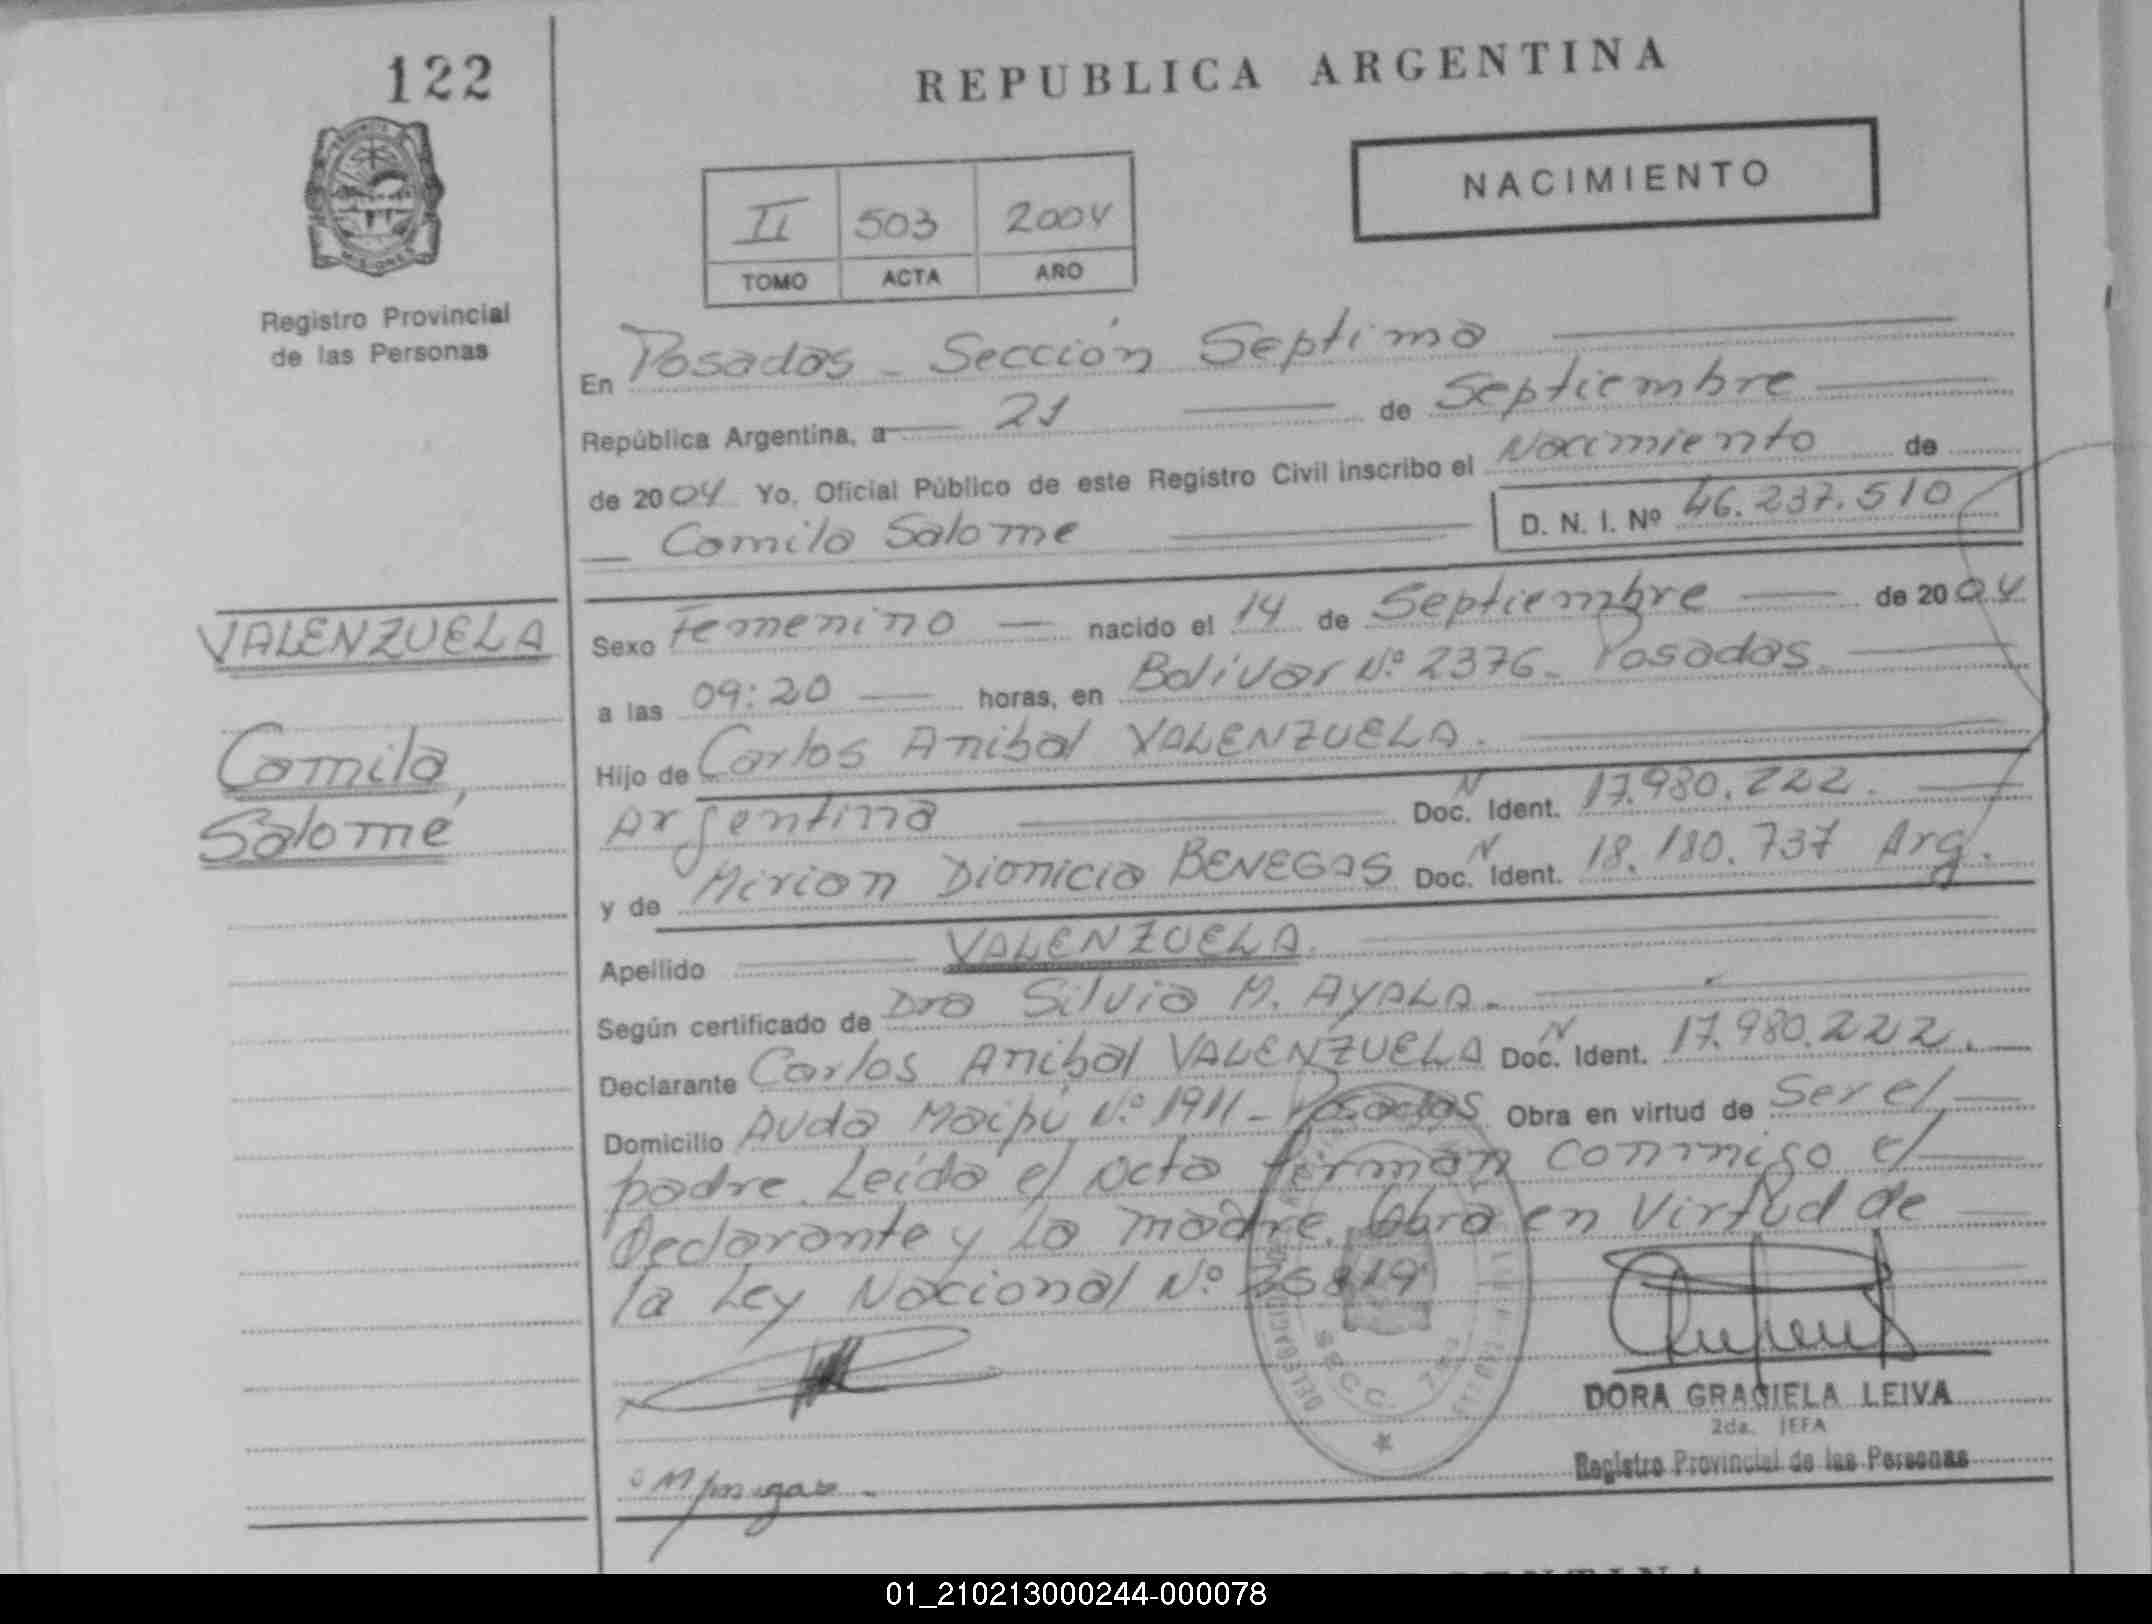 122
REPUBLICA ARGENTINA
NACIMIENTO
II 503 2004
TOMO ACTA AÑO
MISIONES
Registro Provincial
de las Personas
En Posadas - Sección Septima
República Argentina, a 21 de Septiembre
de 2004 Yo, Oficial Público de este Registro Civil inscribo el Nacimiento de
Camila Salome D. N. I. Nº 46.237.510
VALENZUELA
Camila
Salomé
Sexo Femenino nacido el 14 de Septiembre de 2004
a las 09:20 horas, en Bolivar Nº 2376 - Posadas
Hijo de Carlos Anibal VALENZUELA.
Argentina Doc. N Ident. 17.980.222.
y de Mirian Dionicia BENEGAS Doc. N Ident. 18.180.737 Arg.
Apellido VALENZUELA.
Según certificado de Dra Silvia M. AYALA.
Declarante Carlos Anibal VALENZUELA Doc. N Ident. 17.980.222.
Domicilio Avda Maipú Nº 1911 - Posadas Obra en virtud de Ser el
padre. Leida el Acta firman conmigo el
Declarante y la madre. Obra en Virtud de
la Ley Nacional Nº
DORA GRACIELA LEIVA
2da. JEFA
Registro Provincial de las Personas
01_210213000244-000078